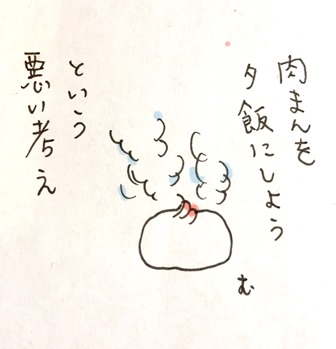 肉まんを
夕飯にしよう
という
悪い考え
む